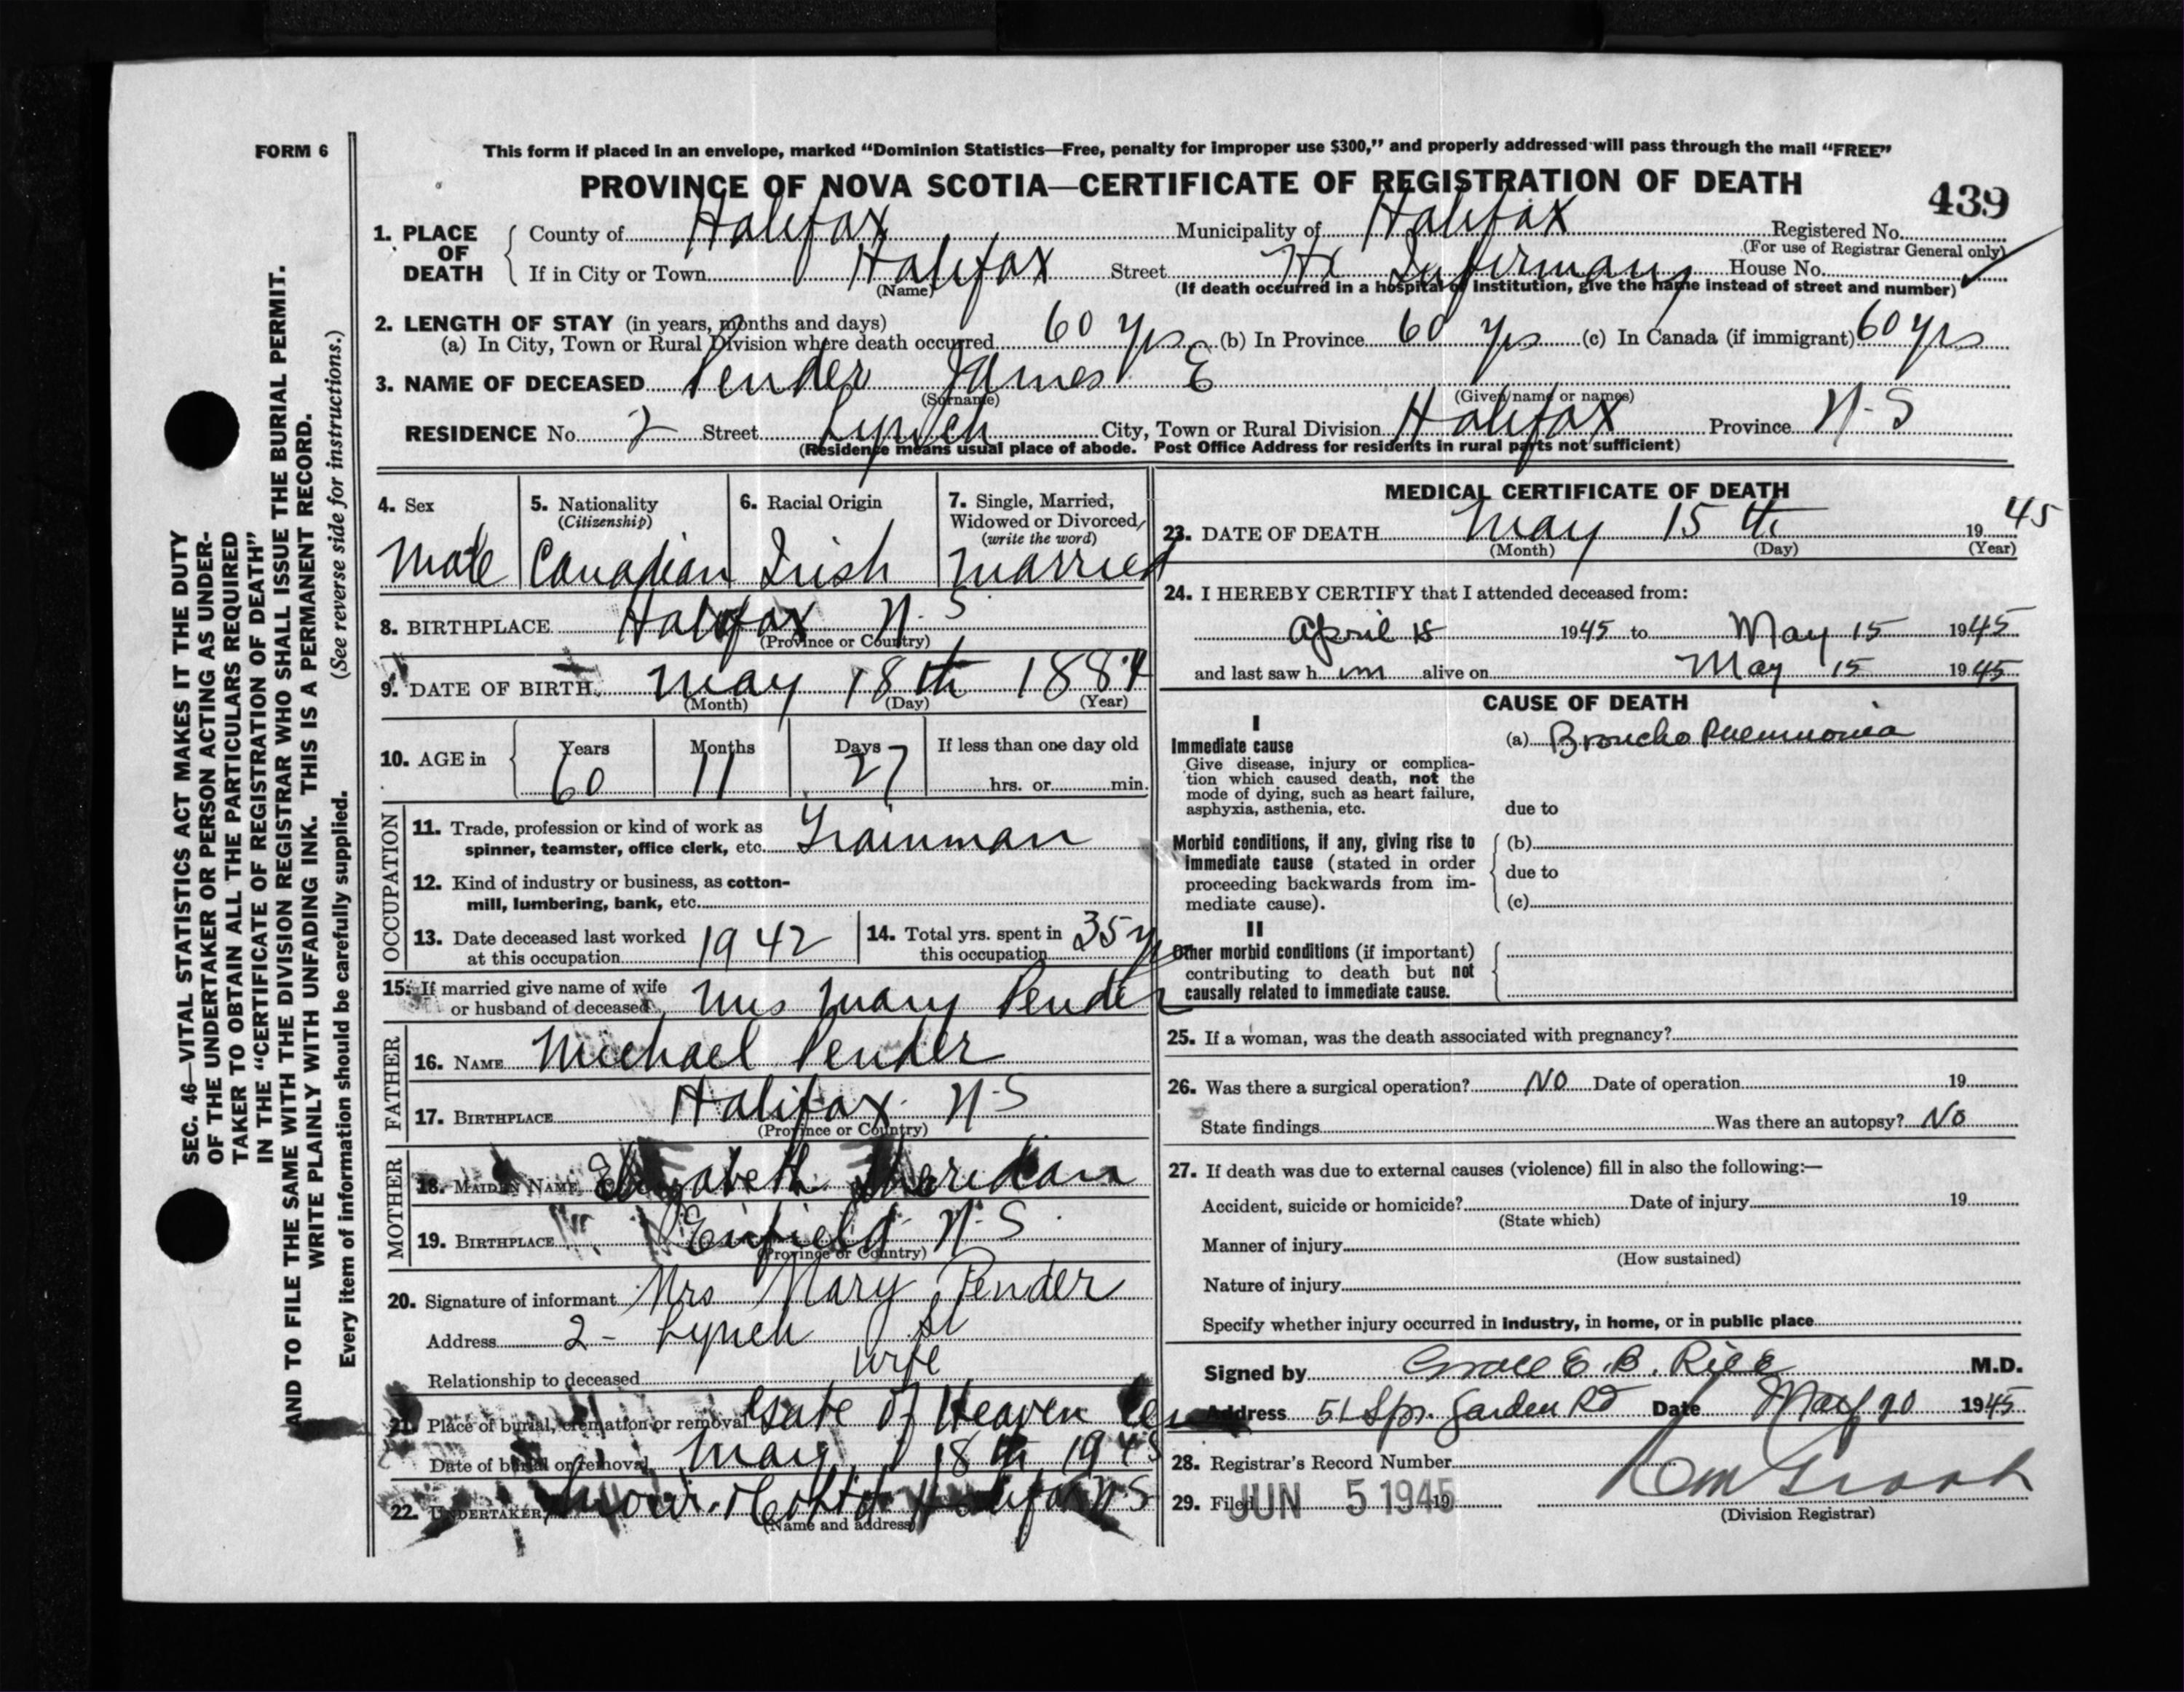 FORM 6
This form if placed in an envelope, marked “Dominion Statistics—Free, penalty for improper use $300,” and properly addressed will pass through the mail “FREE”
PROVINCE OF NOVA SCOTIA—CERTIFICATE OF REGISTRATION OF DEATH
439
1. PLACE OF DEATH
County of Halifax Municipality of Halifax Registered No.
(For use of Registrar General only)
If in City or Town Halifax Street Hx Infirmary House No.
(Name) (If death occurred in a hospital or institution, give the name instead of street and number)
2. LENGTH OF STAY (in years, months and days)
(a) In City, Town or Rural Division where death occurred 60 yrs (b) In Province 60 yrs (c) In Canada (if immigrant) 60 yrs
3. NAME OF DECEASED Pender James E
(Surname) (Given name or names)
RESIDENCE No. 2 Street Lynch City, Town or Rural Division Halifax Province N-S
(Residence means usual place of abode. Post Office Address for residents in rural parts not sufficient)
4. Sex
Male
5. Nationality
(Citizenship)
Canadian
6. Racial Origin
Irish
7. Single, Married,
Widowed or Divorced
(write the word)
Married
8. BIRTHPLACE Halifax N.S
(Province or Country)
9. DATE OF BIRTH May 18th 1884
(Month) (Day) (Year)
10. AGE in
Years Months Days If less than one day old
60 11 27 hrs. or min.
OCCUPATION
11. Trade, profession or kind of work as
spinner, teamster, office clerk, etc. Trainman
12. Kind of industry or business, as cotton-
mill, lumbering, bank, etc.
13. Date deceased last worked
at this occupation 1942
14. Total yrs. spent in
this occupation 35 yr
15. If married give name of wife
or husband of deceased Mrs Mary Pender
FATHER
16. NAME Michael Pender
17. BIRTHPLACE Halifax N-S
(Province or Country)
MOTHER
18. MAIDEN NAME Elizabeth Sheridan
19. BIRTHPLACE Enfield N-S
(Province or Country)
20. Signature of informant Mrs Mary Pender
Address 2 - Lynch St
Relationship to deceased wife
21. Place of burial, cremation or removal Gate of Heaven Cem
Date of burial or removal May 18th 1945
22. UNDERTAKER Snow & Co Ltd Halifax N-S
(Name and address)
MEDICAL CERTIFICATE OF DEATH
23. DATE OF DEATH May 15th 1945
(Month) (Day) (Year)
24. I HEREBY CERTIFY that I attended deceased from:
April 18 1945 to May 15 1945
and last saw h im alive on May 15 1945
CAUSE OF DEATH
I
Immediate cause
Give disease, injury or complica-
tion which caused death, not the
mode of dying, such as heart failure,
asphyxia, asthenia, etc.
(a) Broncho Pneumonia
due to
Morbid conditions, if any, giving rise to
immediate cause (stated in order
proceeding backwards from im-
mediate cause).
(b)
due to
(c)
II
Other morbid conditions (if important)
contributing to death but not
causally related to immediate cause.
25. If a woman, was the death associated with pregnancy?
26. Was there a surgical operation? NO Date of operation 19
State findings Was there an autopsy? NO
27. If death was due to external causes (violence) fill in also the following:—
Accident, suicide or homicide? Date of injury 19
(State which)
Manner of injury
(How sustained)
Nature of injury
Specify whether injury occurred in industry, in home, or in public place
Signed by Grace E. B. Rice M.D.
Address 51 Spr. Garden Rd Date May 20 1945
28. Registrar's Record Number
29. Filed JUN 5 1945 19
(Division Registrar)
SEC. 46—VITAL STATISTICS ACT MAKES IT THE DUTY
OF THE UNDERTAKER OR PERSON ACTING AS UNDER-
TAKER TO OBTAIN ALL THE PARTICULARS REQUIRED
IN THE “CERTIFICATE OF REGISTRATION OF DEATH”
AND TO FILE THE SAME WITH THE DIVISION REGISTRAR WHO SHALL ISSUE THE BURIAL PERMIT.
WRITE PLAINLY WITH UNFADING INK. THIS IS A PERMANENT RECORD.
Every item of information should be carefully supplied. (See reverse side for instructions.)